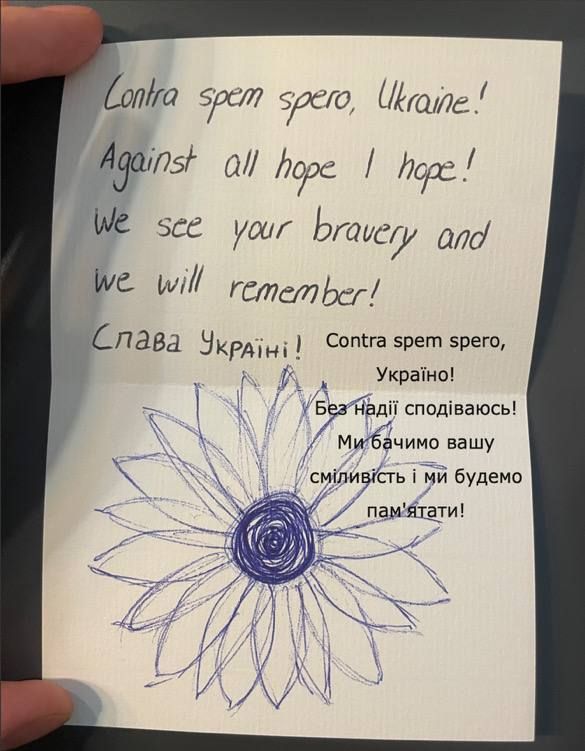 Contra spem spero, Ukraine!
Against all hope I hope!
We see your bravery and
we will remember!
Слава Україні!
Contra spem spero,
Україно!
Без надії сподіваюсь!
Ми бачимо вашу
сміливість і ми будемо
пам'ятати!